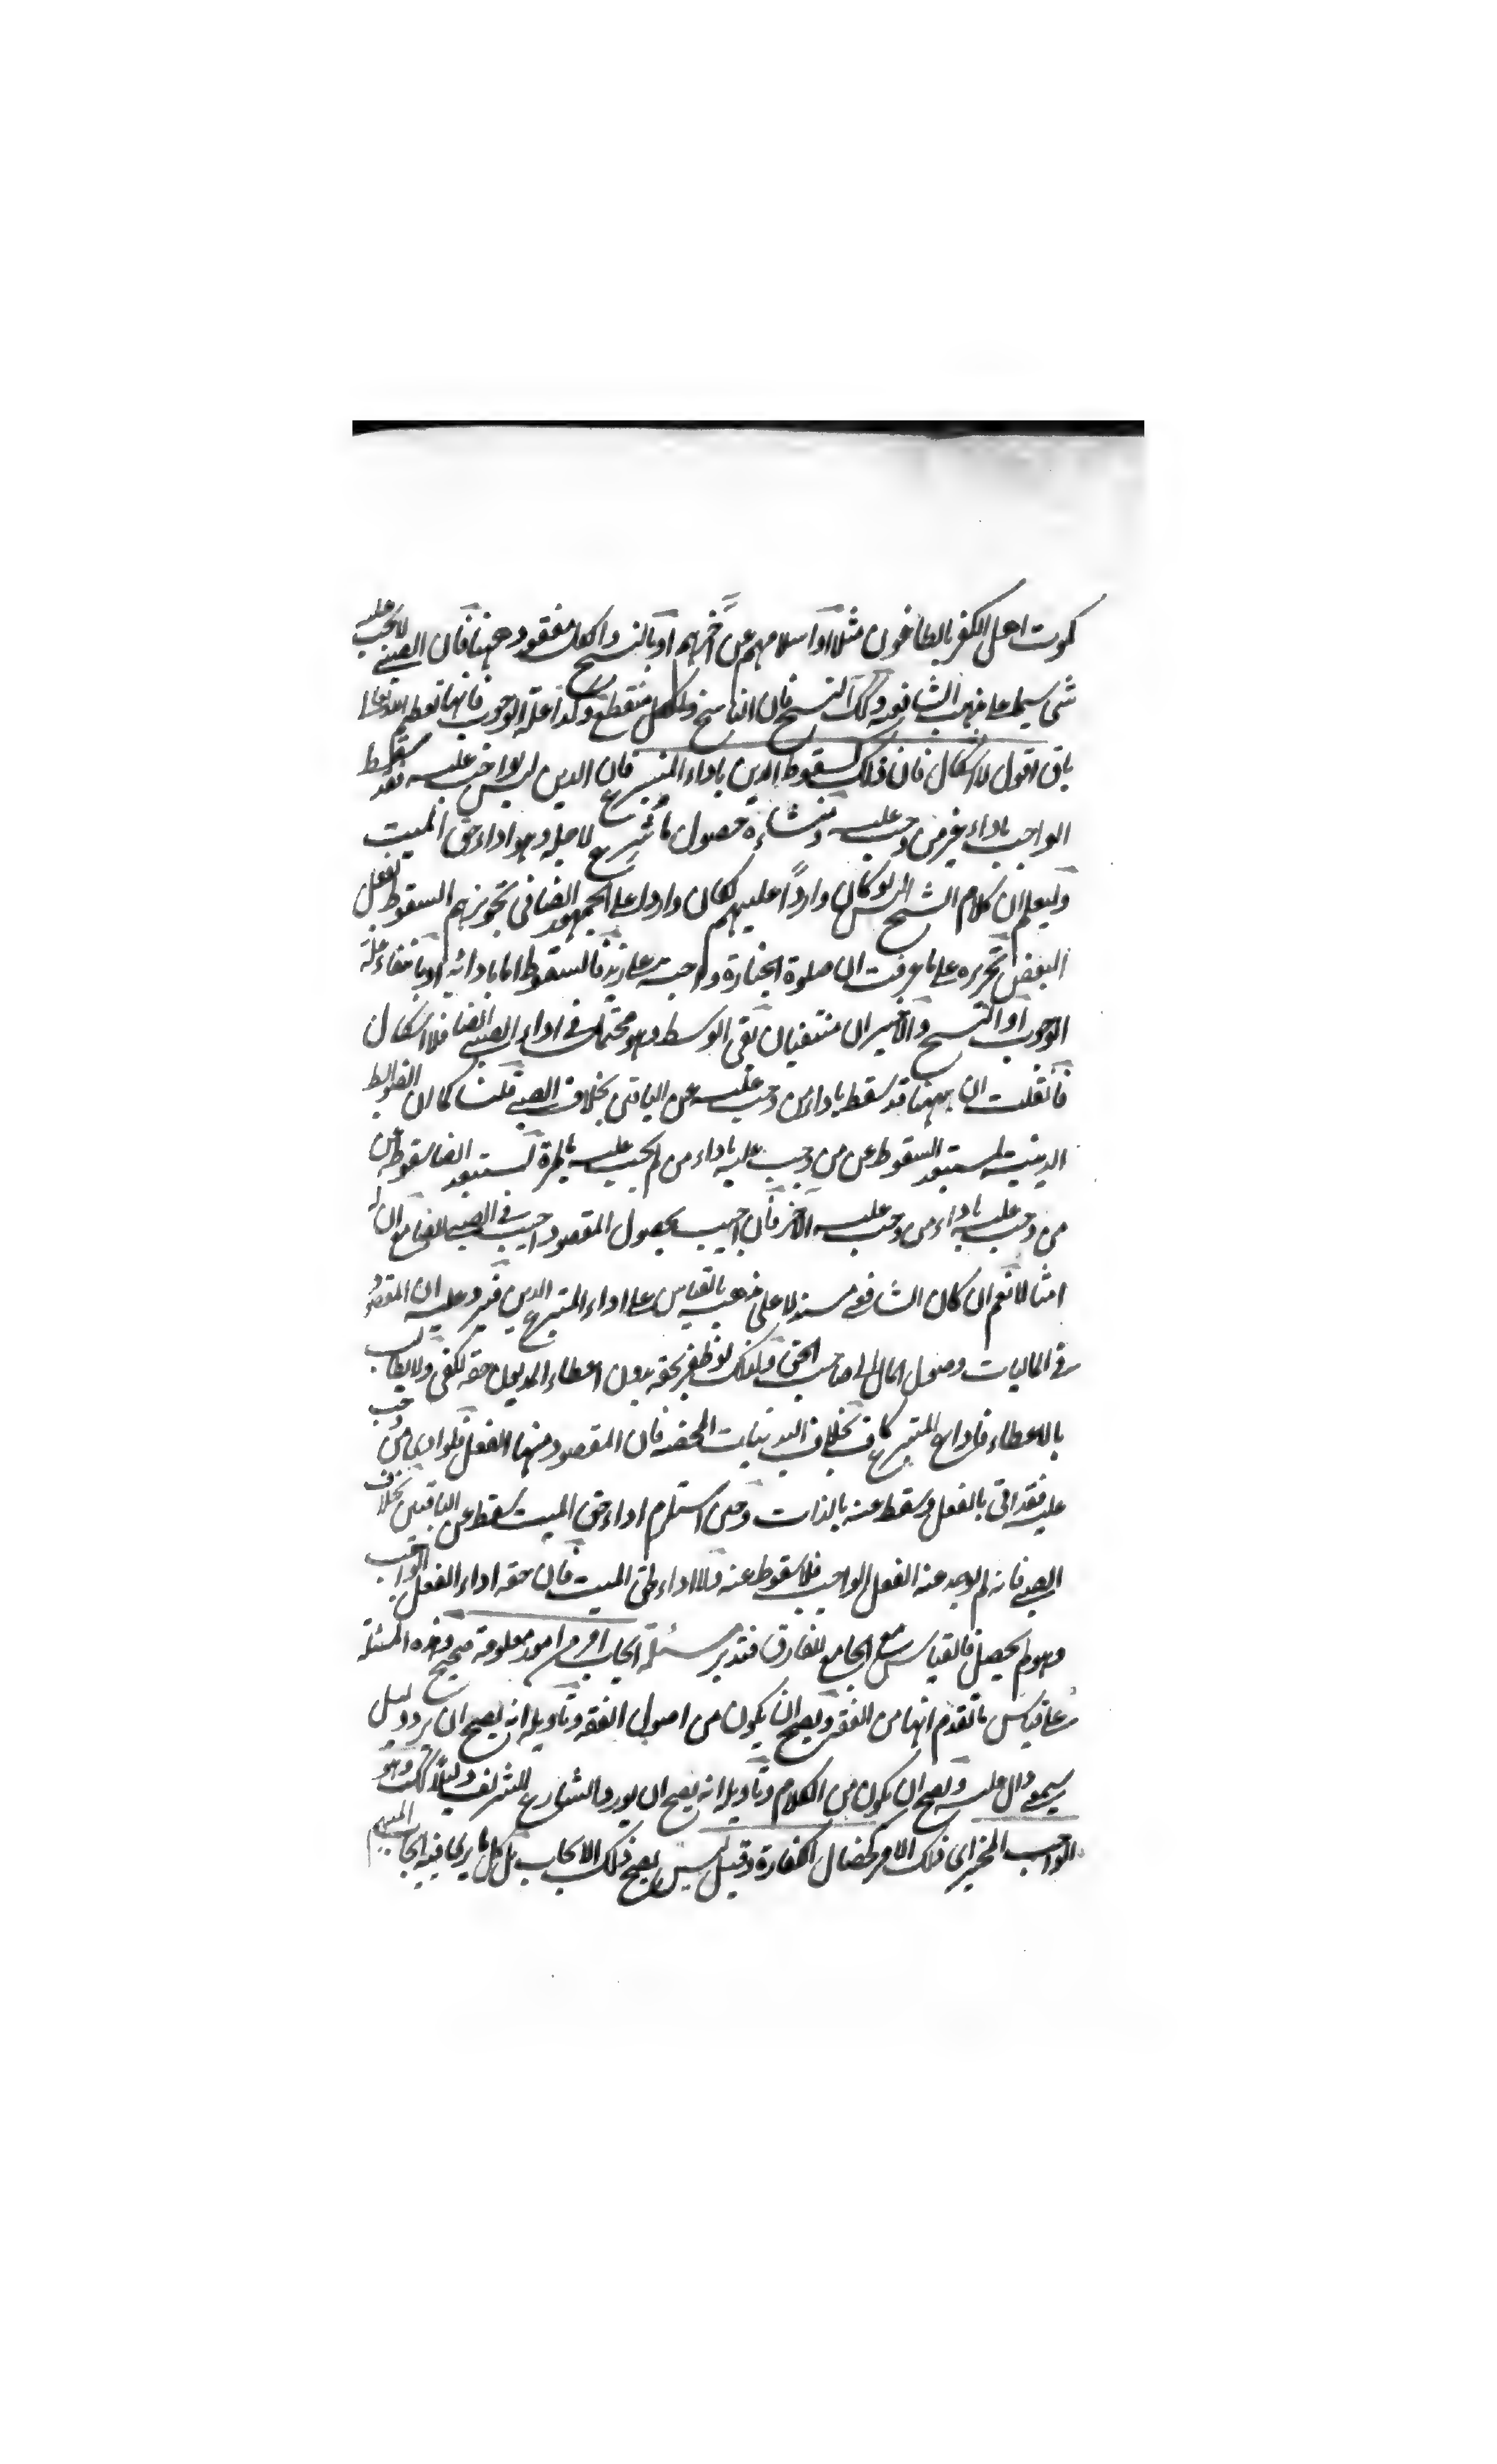 كموت اهل الكفر بالطاعون مثلا او اسلامهم عن آخرهم او بالنسخ والكل مفقود ههنا فان الصبي لا يجب عليه
شئ سيما على مذهب الشافعية وكك النسخ فان الناسخ ولكل منقطع وكذا علة الوجوب فانها تعظيم الله تعالى
باق اقول لا اشكال فان ذلك كسقوط الدين باداء المتبرع فان الدين ليس بواجب عليه فقد سقط
الواجب باداء غير من وجب عليه ومنشاءه حصول ما شرع لاجله وهو اداء حق الميت
وليعلم ان كلام الشيخ الهرلو كان واردًا عليهم لكان واردا على الجمهور ايضا في تجويزهم السقوط بفعل
البعض تحريره على ما عرفت ان صلوة الجنازة واجبة على زيد فالسقوط اما بادائه او بانتفاء علة
الوجوب او النسخ والاخيران منتفيان بقى الوسط وهو محتمل في اداء الصبي ايضا فلا اشكال
فانقلت ان ههنا قد سقط باداء من وجب عليه عن الباقي بخلاف الصبي قلنا كما ان الضوابط
الدينية يستبعد السقوط عن من وجب عليه باداء من لم يجب عليه بالمرة يستبعد ايضا سقوط عن
من وجب عليه باداء من وجب عليه الآخر فان اجيب بحصول المقصود اجيب في الصبي ايضا مع ان له
امثالا نعم ان كان الشافعي مستدلا على مذهبه بالقياس على اداء المتبرع الدين فيرد عليه ان المقصود
في الماليات وصول المال الى صاحب الحق ولذلك لو ظفر بحقه بدون اعطاء المديون حقه لكفى ولا يطالب
بالاعطاء فاداء المتبرع كاف بخلاف البدنيات المحضة فان المقصود منها الفعل فلو ادى من وجب
عليه فقد اتى بالفعل وسقط عنه بالذات وحين استلزم اداء حق الميت سقط عن الباقين بخلاف
الصبي فانه لم يوجد عنه الفعل الواجب فلا سقوط عنه ولا اداء حق الميت فان حقه اداء الفعل الواجب
وهو لم يحصل فالقياس مع الجامع للفارق فتدبر مسئلة ايجاب امر من امور معلومة صحيح وهذه المسئلة
على قياس ما تقدم انها من الفقه ويصح ان يكون من اصول الفقه وتاويله انه يصح ان يرد دليل
سمعي دال عليه ويصح ان يكون من الكلام وتاويله انه يصح ان يورد الشارع الشريف دليلا كك وهو
الواجب المخير اى ذلك الامر كخصال الكفارة وقيل ليس يصح ذلك الايجاب بل كل ما يرى فيه ايجاب المبهم